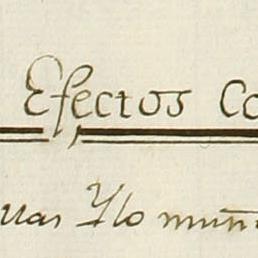 Efectos Co
uas Ylo mun